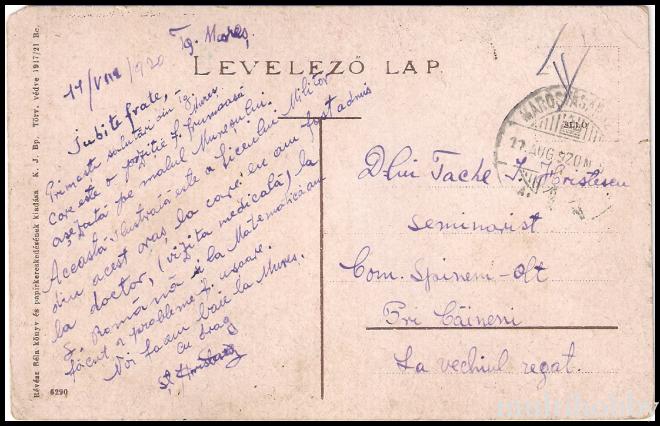 LEVELEZŐ LAP
Tg. Mureș,
17/VIII/1920
Iubite frate,
Primește salutări din Tg. Mureș
care este o poziție f. frumoasă
așezată pe malul Mureșului.
Această ilustrată este a liceului Militar
din acest oraș la care eu am fost admis
la doctor, (vizita medicală) la
Română și la Matematică am
făcut o problemă f. ușoare.
Noi facem baie la Mureș.
cu drag
Dlui Tache Hristescu
Seminarist
Com. Spinem-Olt
Pri Câineni
La vechiul regat.
MAROSVÁSÁRHELY
AUG 920
Révész Béla könyv és papirkereskedésének kiadása K. J. Bp. Törv. védve 1917/21 Be.
6290